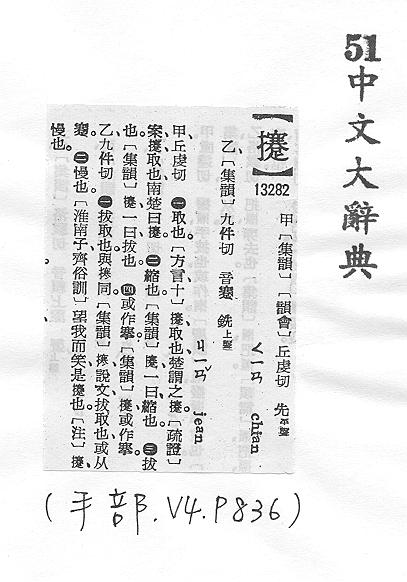 51
中文大辭典
【攓】
13282
甲〔集韻〕〔韻會〕丘虔切 先平聲 ㄑㄧㄢ chian
乙〔集韻〕九件切 音蹇 銑上聲 ㄐㄧㄢˇ jean
甲丘虔切 ㊀取也。〔方言十〕攓、取也、楚謂之攓。〔疏證〕
案、攓取也、南楚曰攓。㊁縮也。〔集韻〕攓、一曰縮也。㊂拔
也。〔集韻〕攓、一曰拔也。㊃或作搴。〔集韻〕攓、或作搴。
乙九件切 ㊀拔取也、與𢷤同。〔集韻〕𢷤、說文、拔取也、或从
蹇。㊁慢也。〔淮南子齊俗訓〕望我而笑、是攓也。〔注〕攓、
慢也。
(手部.V4.P836)